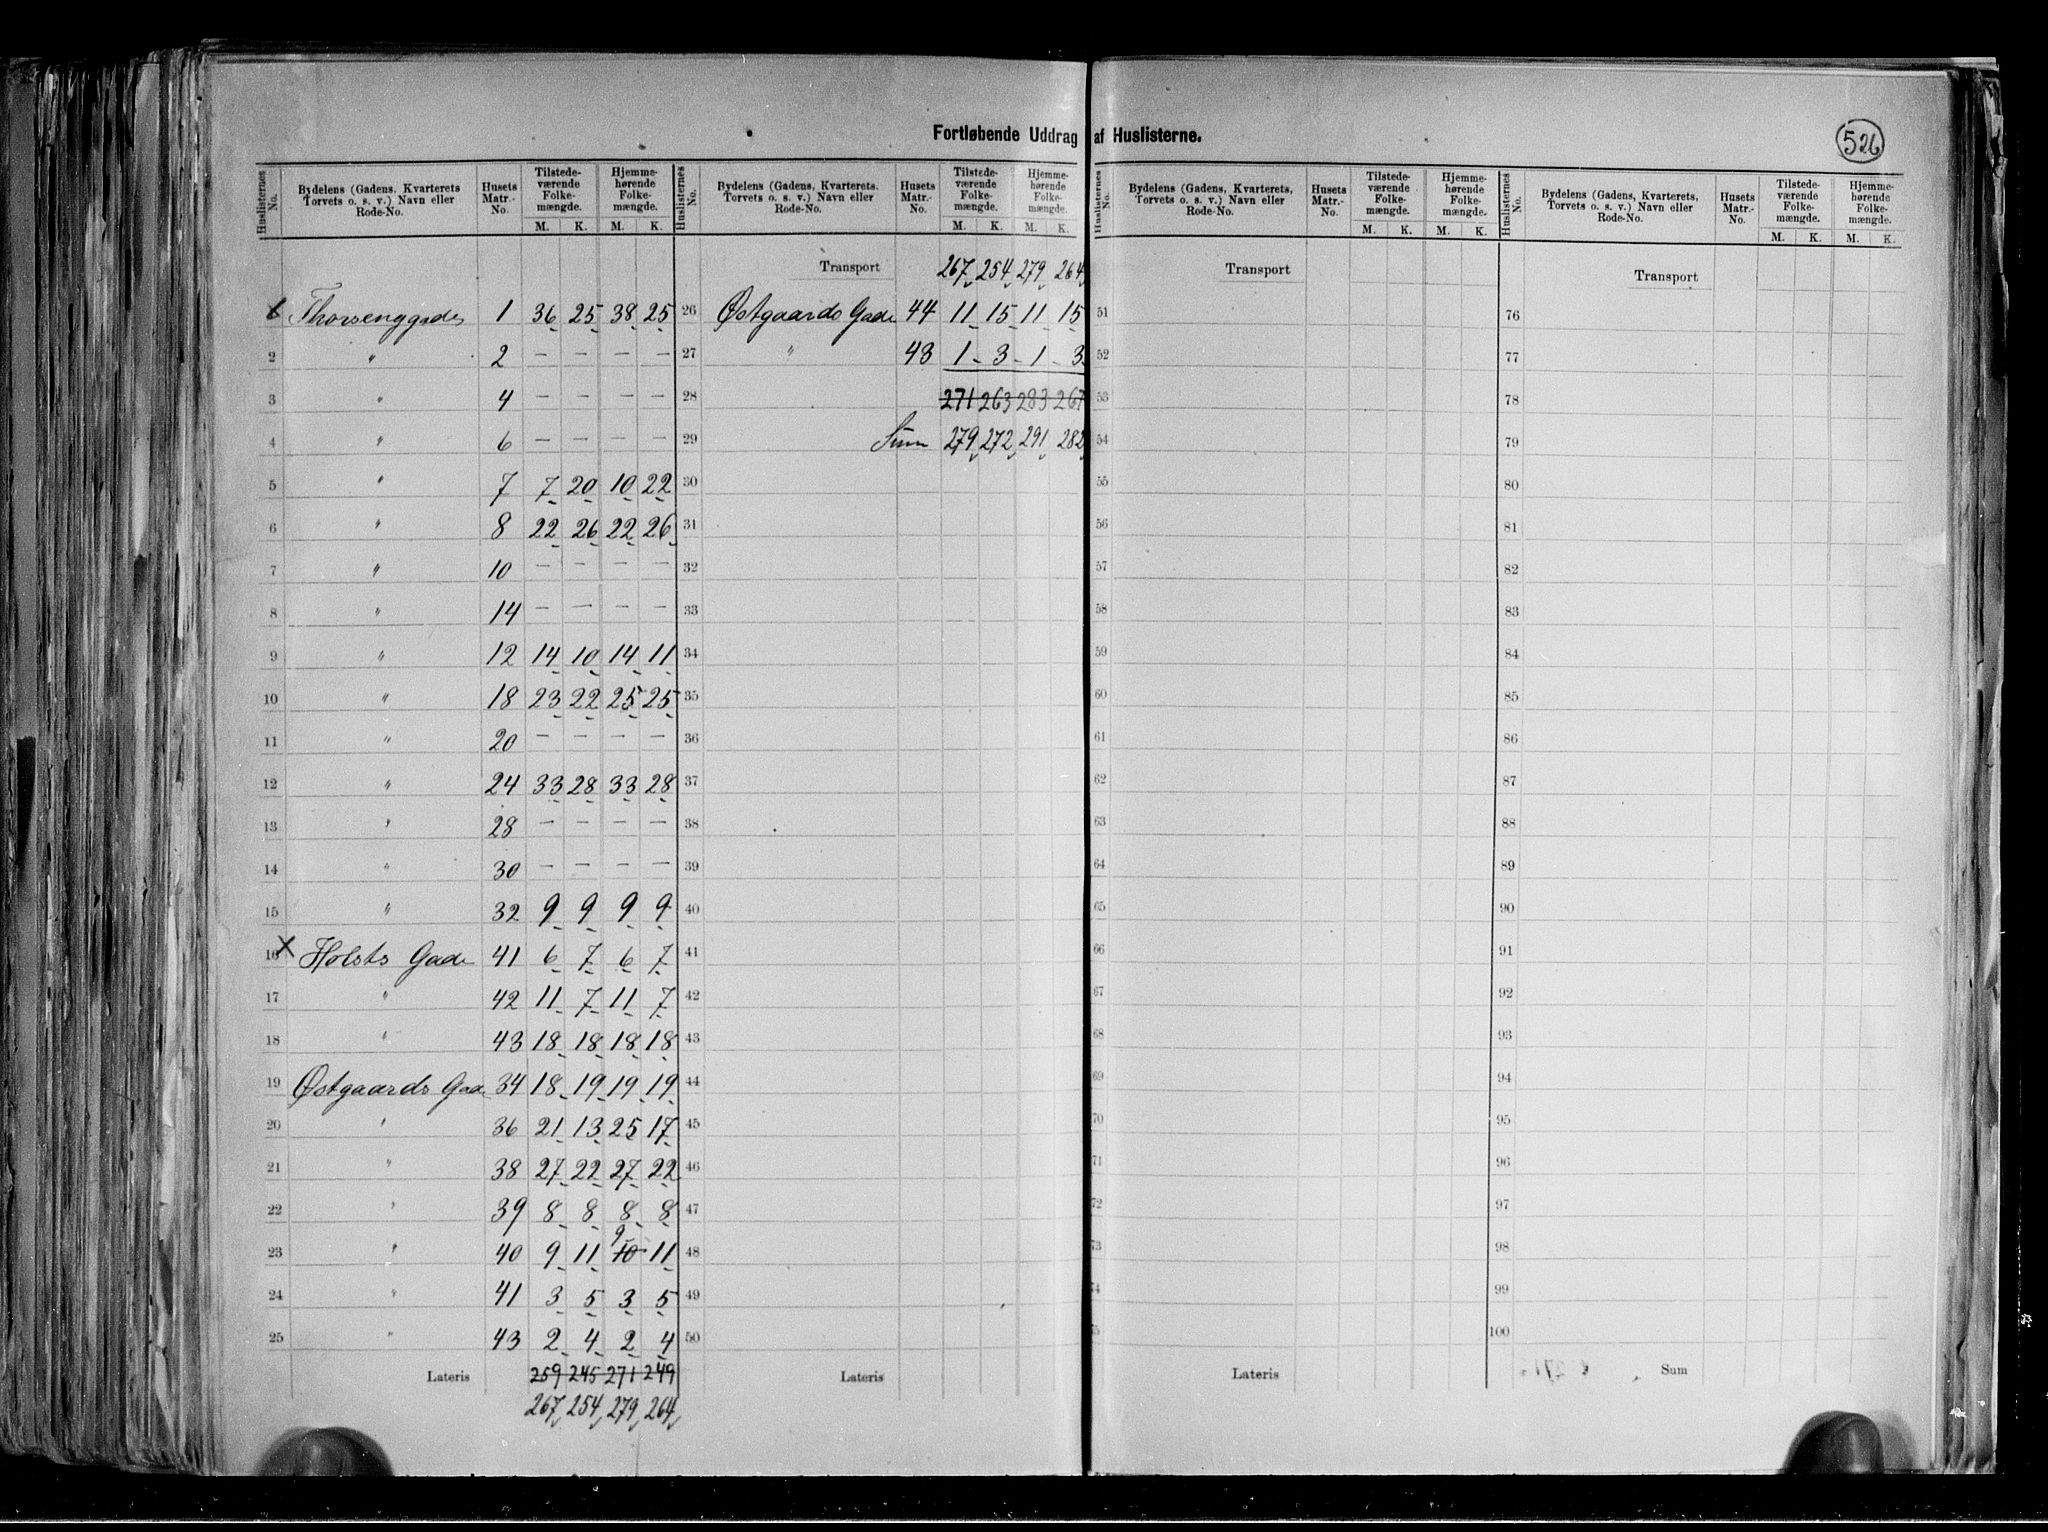 Fortløbende Uddrag af Huslisterne.
526
Huslisternes No. Bydelens (Gadens, Kvarterets Torvets o. s. v.) Navn eller Rode-No. Husets Matr.-No. Tilstedeværende Folkemængde. M. K. Hjemmehørende Folkemængde. M. K.
Thorsenggades 1 36 25 38 25
2 " 2 — — — —
3 " 4 — — — —
4 " 6 — — — —
5 " 7 7 20 10 22
6 " 8 22 26 22 26
7 " 10 — — — —
8 " 14 — — — —
9 " 12 14 10 14 11
10 " 18 23 22 25 25
11 " 20 — — — —
12 " 24 33 28 33 28
13 " 28 — — — —
14 " 30 — — — —
15 " 32 9 9 9 9
16 Holsts Gade 41 6 7 6 7
17 " 42 11 7 11 7
18 " 43 18 18 18 18
19 Østgaards Gade 34 18 19 19 19
20 " 36 21 13 25 17
21 " 38 27 22 27 22
22 " 39 8 8 8 8
9
23 " 40 9 11 10 11
24 " 41 3 5 3 5
25 " 43 2 4 2 4
Lateris 259 245 271 249
267 254 279 264
Huslisternes No. Bydelens (Gadens, Kvarterets, Torvets o. s. v.) Navn eller Rode-No. Husets Matr.-No. Tilstedeværende Folkemængde. M. K. Hjemmehørende Folkemængde. M. K.
Transport 267 254 279 264
26 Østgaards Gade 44 11 15 11 15
27 " 43 1 3 1 3
28 271 263 283 267
29 Sum 279 272 291 282
30
31
32
33
34
35
36
37
38
39
40
41
42
43
44
45
46
47
48
49
50
Lateris
Huslisternes No. Bydelens (Gadens, Kvarterets, Torvets o. s. v.) Navn eller Rode-No. Husets Matr.-No. Tilstedeværende Folkemængde. M. K. Hjemmehørende Folkemængde. M. K.
Transport
51
52
53
54
55
56
57
58
59
60
61
62
63
64
65
66
67
68
69
70
71
72
73
74
75
Lateris
Huslisternes No. Bydelens (Gadens, Kvarterets, Torvets o. s. v.) Navn eller Rode-No. Husets Matr.-No. Tilstedeværende Folkemængde. M. K. Hjemmehørende Folkemængde. M. K.
Transport
76
77
78
79
80
81
82
83
84
85
86
87
88
89
90
91
92
93
94
95
96
97
98
99
100
Sum